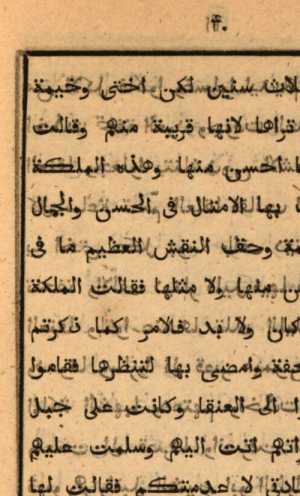 ٤٠
ثلاث سنين لكن اختى وخيمة
تراها لانها قريبة منهم وقالت
احسن منها وهذه الملكة
بها الامثال فى الحسن والجمال
وحق النقش العظيم ما فى
منها ولا مثلها فقالت الملكة
كان ولا بد فالامر كما ذكرتم
وامضى بها لتنظرها فقاموا
الى العنقا وكانت على جبل
انهم اتت اليهم وسلمت عليهم
لا عدمتكم فقالت لها